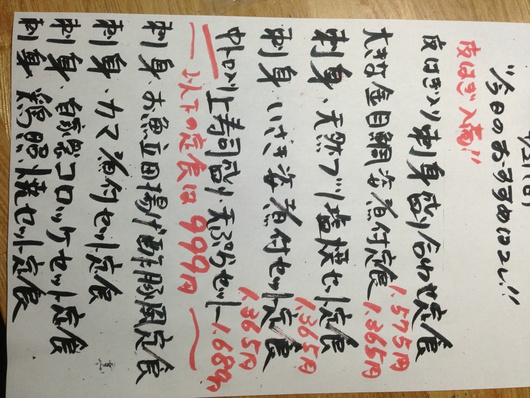 "今日のおすすめはコレ!!
皮はぎ入荷!!
皮はぎ入り刺身盛り合わせ定食 1,575円
大きな金目鯛姿煮付定食 1,365円
刺身、天然ブリ塩焼セット定食 1,365円
刺身、いさき姿煮付セット定食 1,365円
中トロ入り上寿司盛り天ぷらセット 1,680
以下の定食は999円
刺身 お魚立田揚げ酢豚風定食
刺身、カマ煮付セット定食
刺身、自家製コロッケセット定食
刺身 鶏照焼セット定食